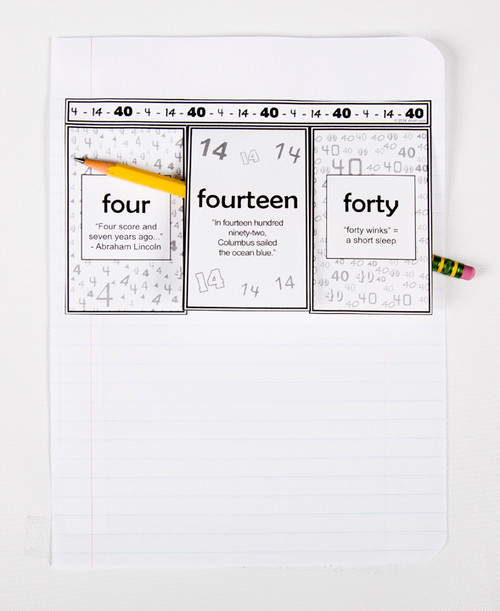 4 - 14 - 40 - 4 - 14 - 40 - 4 - 14 - 40 - 4 - 14 - 40 - 4 - 14 - 40
four
"Four score and
seven years ago..."
- Abraham Lincoln
14 14 14
fourteen
"In fourteen hundred
ninety-two,
Columbus sailed
the ocean blue."
14 14 14
forty
"forty winks" =
a short sleep